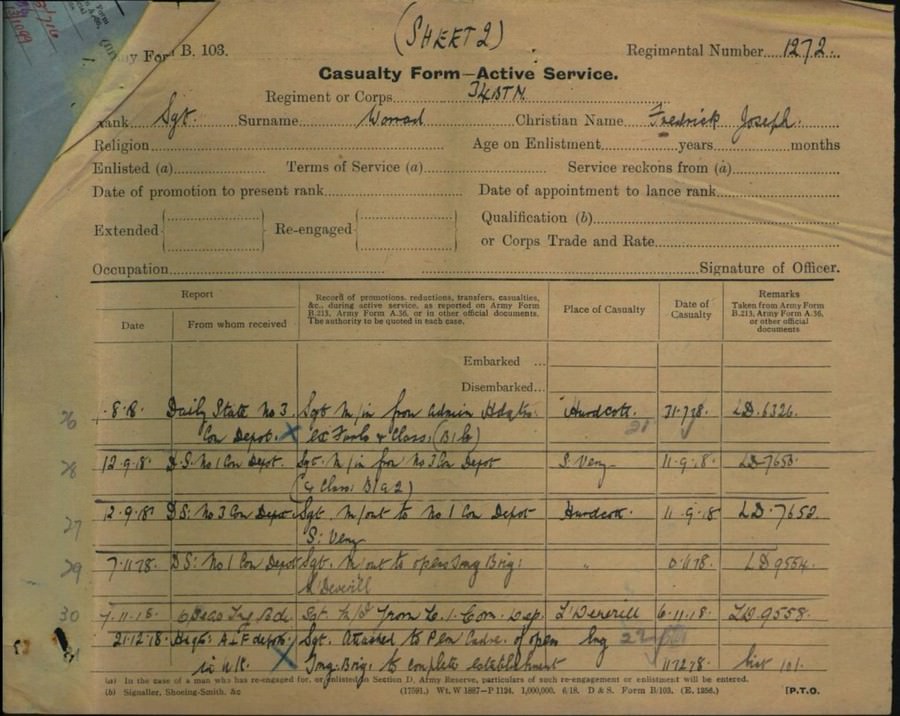 (SHEET 2)
Army Form B. 103.
Regimental Number 1272.
Casualty Form—Active Service.
Regiment or Corps
Rank Sgt. Surname Christian Name Fredrick Joseph.
Religion Age on Enlistment years months
Enlisted (a) Terms of Service (a) Service reckons from (a)
Date of promotion to present rank Date of appointment to lance rank
Extended Re-engaged Qualification (b)
or Corps Trade and Rate
Occupation Signature of Officer.
Report
Date
From whom received
Record of promotions, reductions, transfers, casualties,
&c., during active service, as reported on Army Form
B.213, Army Form A.36, or in other official documents.
The authority to be quoted in each case.
Place of Casualty
Date of
Casualty
Remarks
Taken from Army Form
B.213, Army Form A.36,
or other official
documents
Embarked ...
Disembarked...
.8.18. Daily State No 3. Sgt M/in from Admin Hdqtrs. Hurdcott. 31.7.18. LD.6326.
Con Depot. ex Furlo & Class: (B1b)
28 12.9.18. D.S. No 1 Con Depot. Sgt. M/in from No 3 Con Depot S. Veny 11.9.18. LD 7653.
(& Class: B1a2)
27 12.9.18. DS: No 3 Con Depot Sgt. M/out to No 1 Con Depot Hurdcott. 11.9.18 LD.7652.
S: Veny
29 7.11.18. DS: No 1 Con Depot Sgt. M/out to Opseas Tng Brig: " LD 9554.
L'Deverill
30 7.11.18. Opseas Tng Bde. Sgt. from No. 1. Con. Dep. L'Deverill 6.11.18. LD.9558.
21.12.18. Hdqts. A.I.F. depots. Sgt. Attached to Perm Cadre. of opseas
in U.K. Tng: Brig: to complete establishment List 101.
(a) In the case of a man who has re-engaged for, or enlisted in Section D, Army Reserve, particulars of such re-engagement or enlistment will be entered.
(b) Signaller, Shoeing-Smith, &c. (17591.) Wt. W 1887—P 1124. 1,000,000. 6/18. D & S. Form B/103. (E. 1256.) [P.T.O.